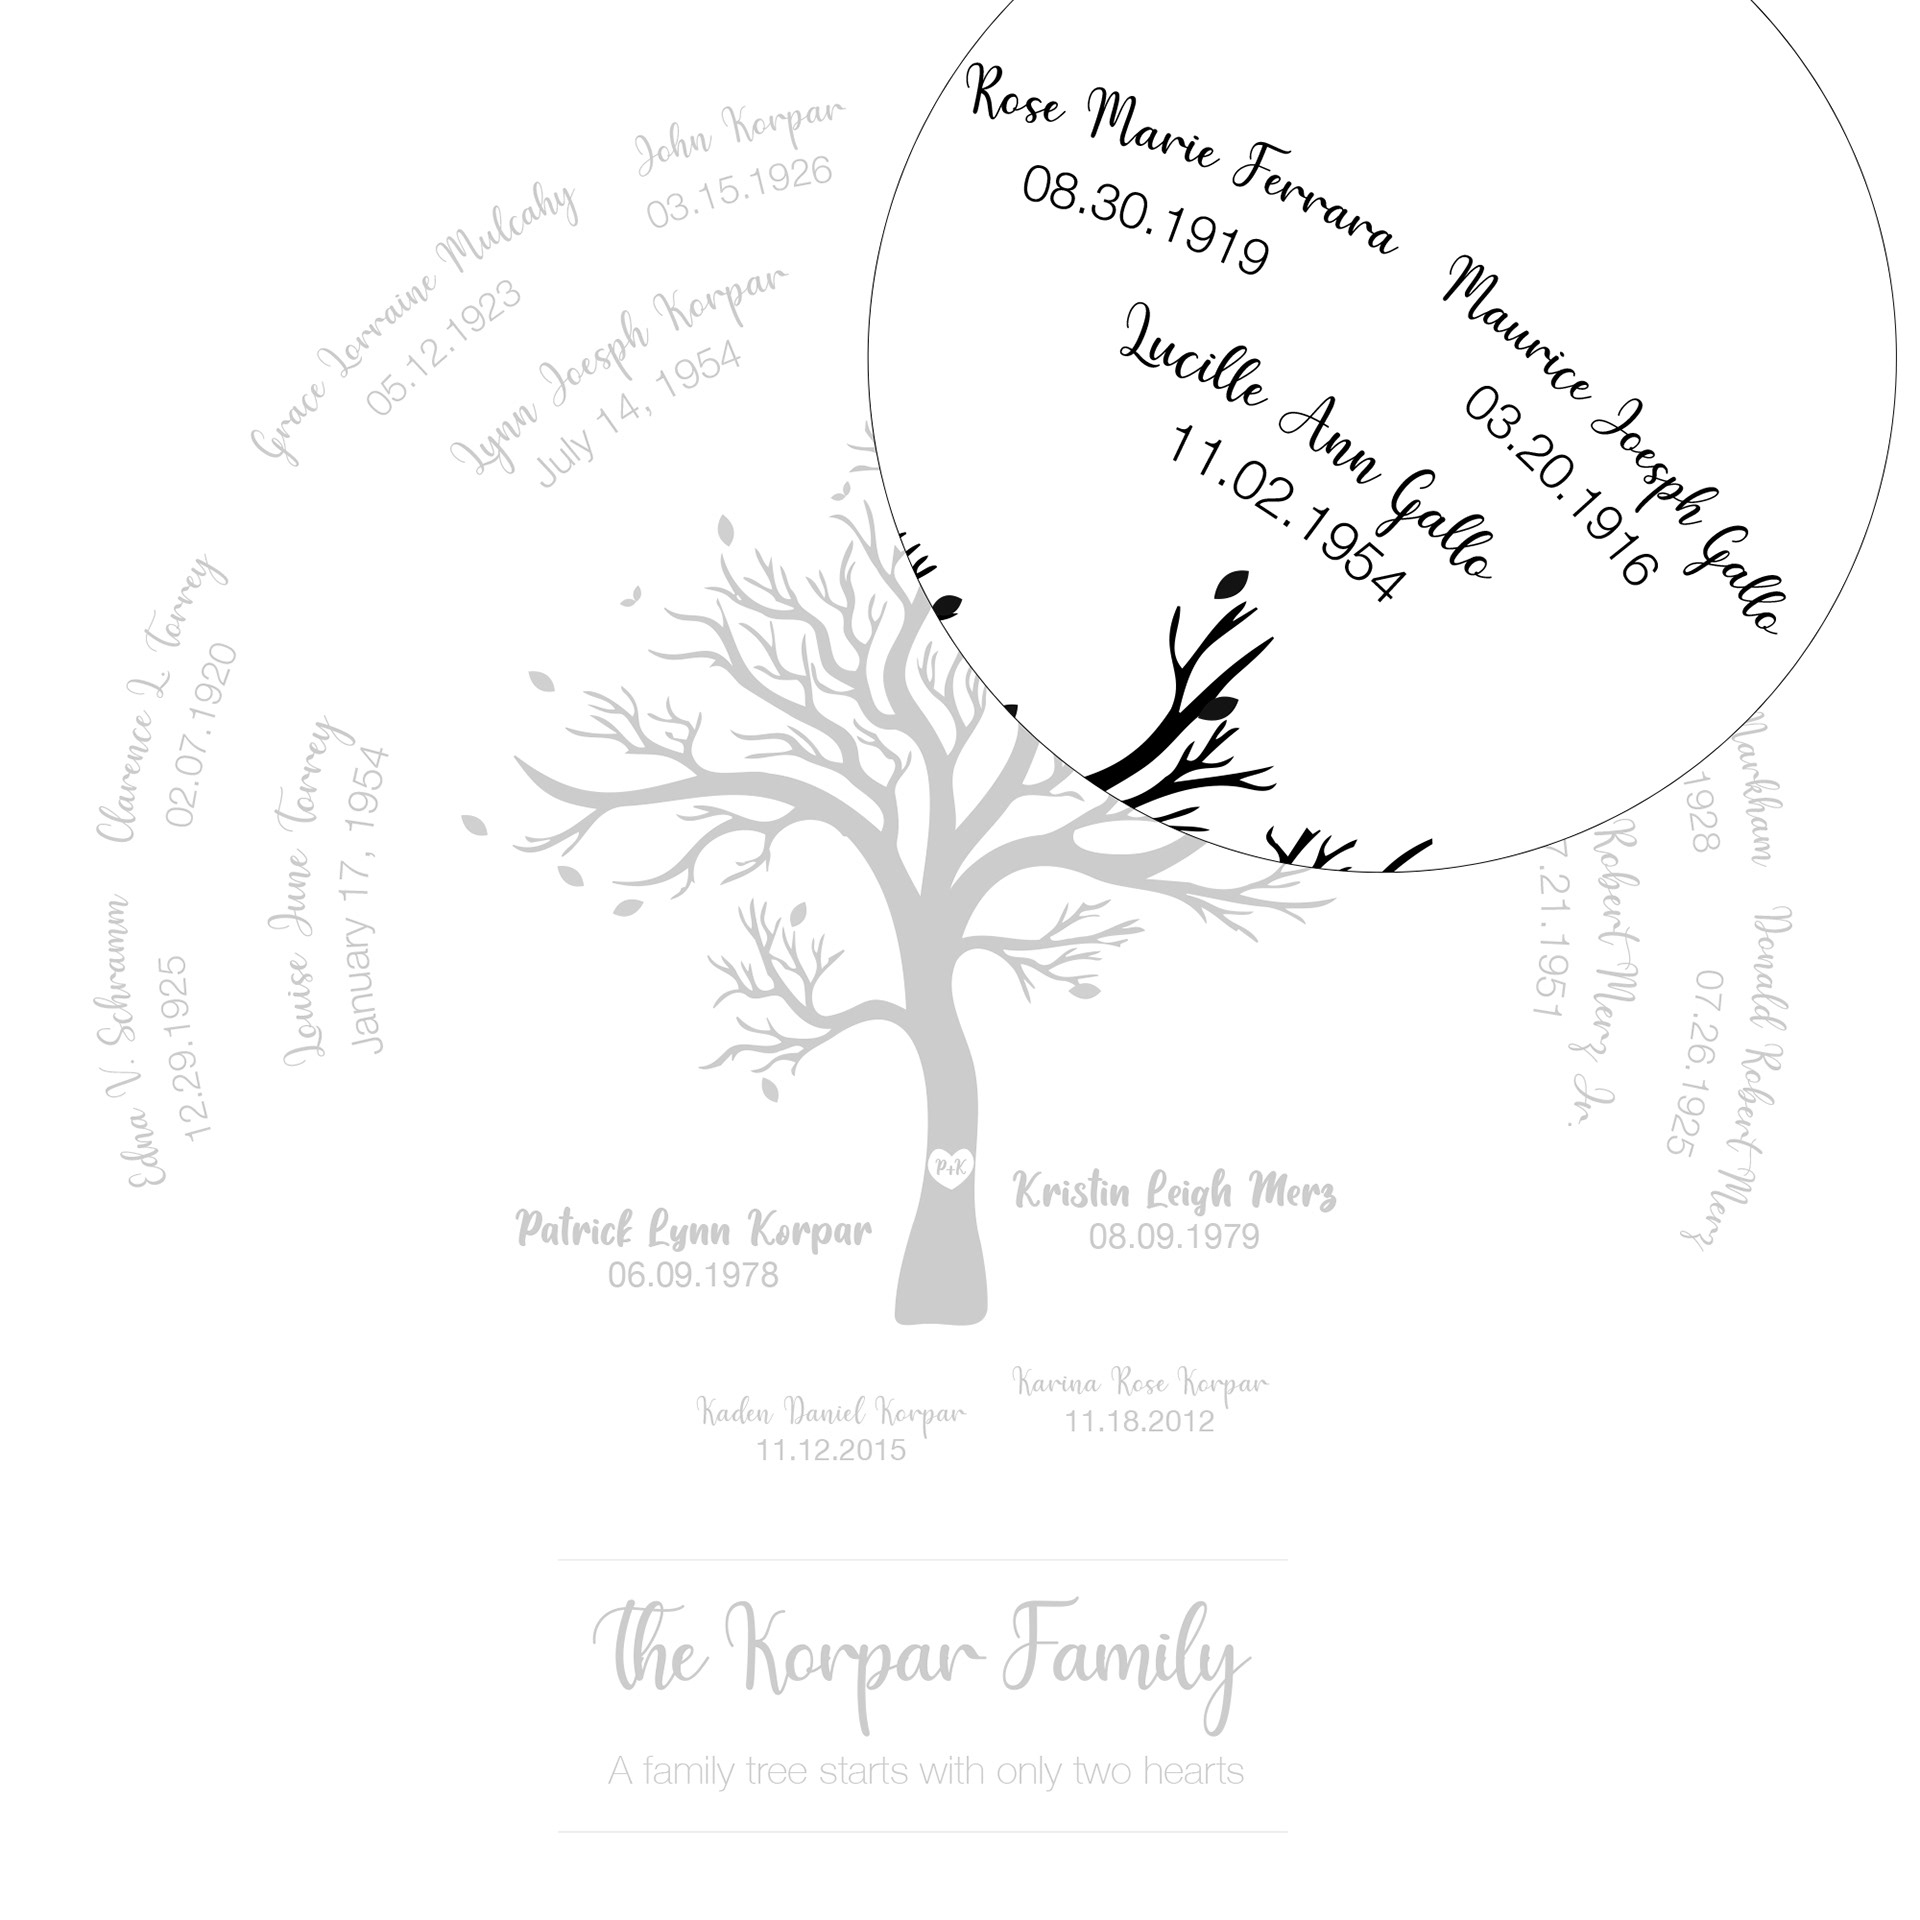 John Korpar
03.15.1926
Grace Lorraine Mulcahy
05.12.1923
Lynn Joesph Korpar
July 14, 1954
Clarence L. Torrey
02.07.1920
Edna V. Schramm
12.29.1925
Louise June Torrey
January 17, 1954
Rose Marie Ferrara
08.30.1919
Maurice Joesph Gallo
03.20.1916
Lucille Ann Gallo
11.02.1954
Markham
1928
Donald Robert Merz
07.26.1925
Robert Merz Jr.
.21.1951
P+K
Patrick Lynn Korpar
06.09.1978
Kristin Leigh Merz
08.09.1979
Kaden Daniel Korpar
11.12.2015
Karina Rose Korpar
11.18.2012
The Korpar Family
A family tree starts with only two hearts